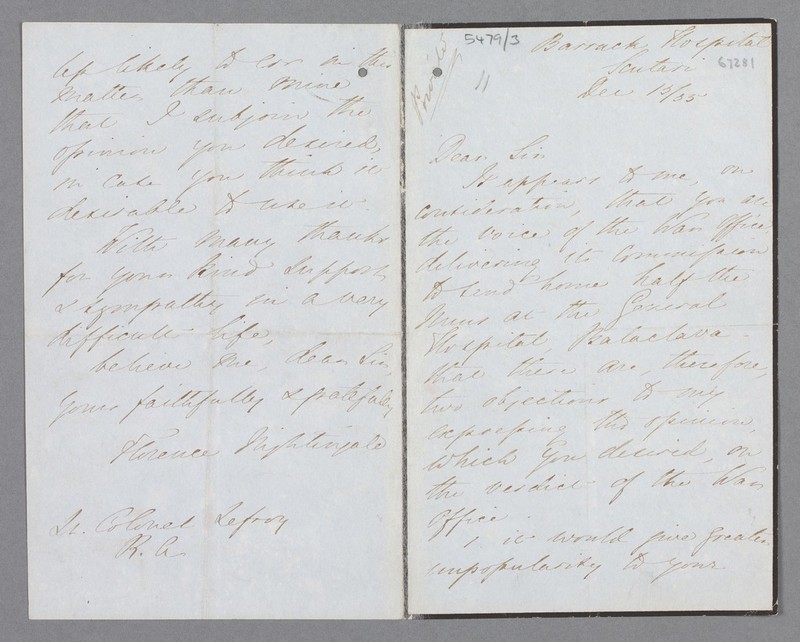 less likely to err in this
matter than mine
that I subjoin the
opinion you desired,
in case you think it
desirable to use it.
With many thanks
for your kind support
& sympathy in a very
difficult life,
believe me, dear Sir,
yours faithfully & gratefully
Florence Nightingale
Lt. Colonel Lefroy
R. A.
Private
5479/3
67281
Barrack Hospital
Scutari
Dec 15/55
Dear Sir
It appears to me, on
consideration, that you are
the voice of the War Office
delivering its Commission
to send home half the
Nuns at the General
Hospital Balaclava -
that there are, therefore,
two objections to my
expressing the opinion,
which you desired, on
the verdict of the War
Office.
1. it would give greater
unpopularity to your